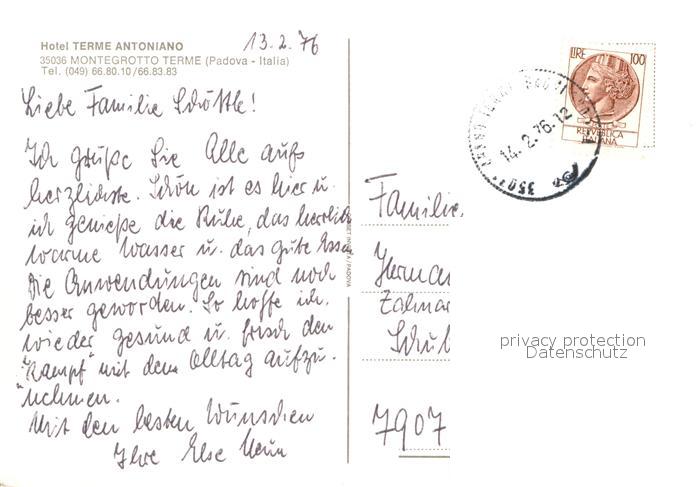 Hotel TERME ANTONIANO
35036 MONTEGROTTO TERME (Padova - Italia)
Tel. (049) 66.80.10/66.83.83
13.2.76
Liebe Familie Schöttle!
Ich grüße Sie Alle aufs
herzlichste. Schön ist es hier u.
ich genieße die Ruhe, das herrlich
warme Wasser u. das gute Essen
Die Anwendungen sind noch
besser geworden. So hoffe ich,
wieder gesund u. frisch den
"Kampf" mit dem Alltag aufzu-
nehmen.
Mit den besten Wünschen
Ihre Else
LIRE 100
REPVBBLICA
ITALIANA
14.2.76.12
3503
Familie
Herma
Zahnar
Schul
7907
privacy protection
Datenschutz